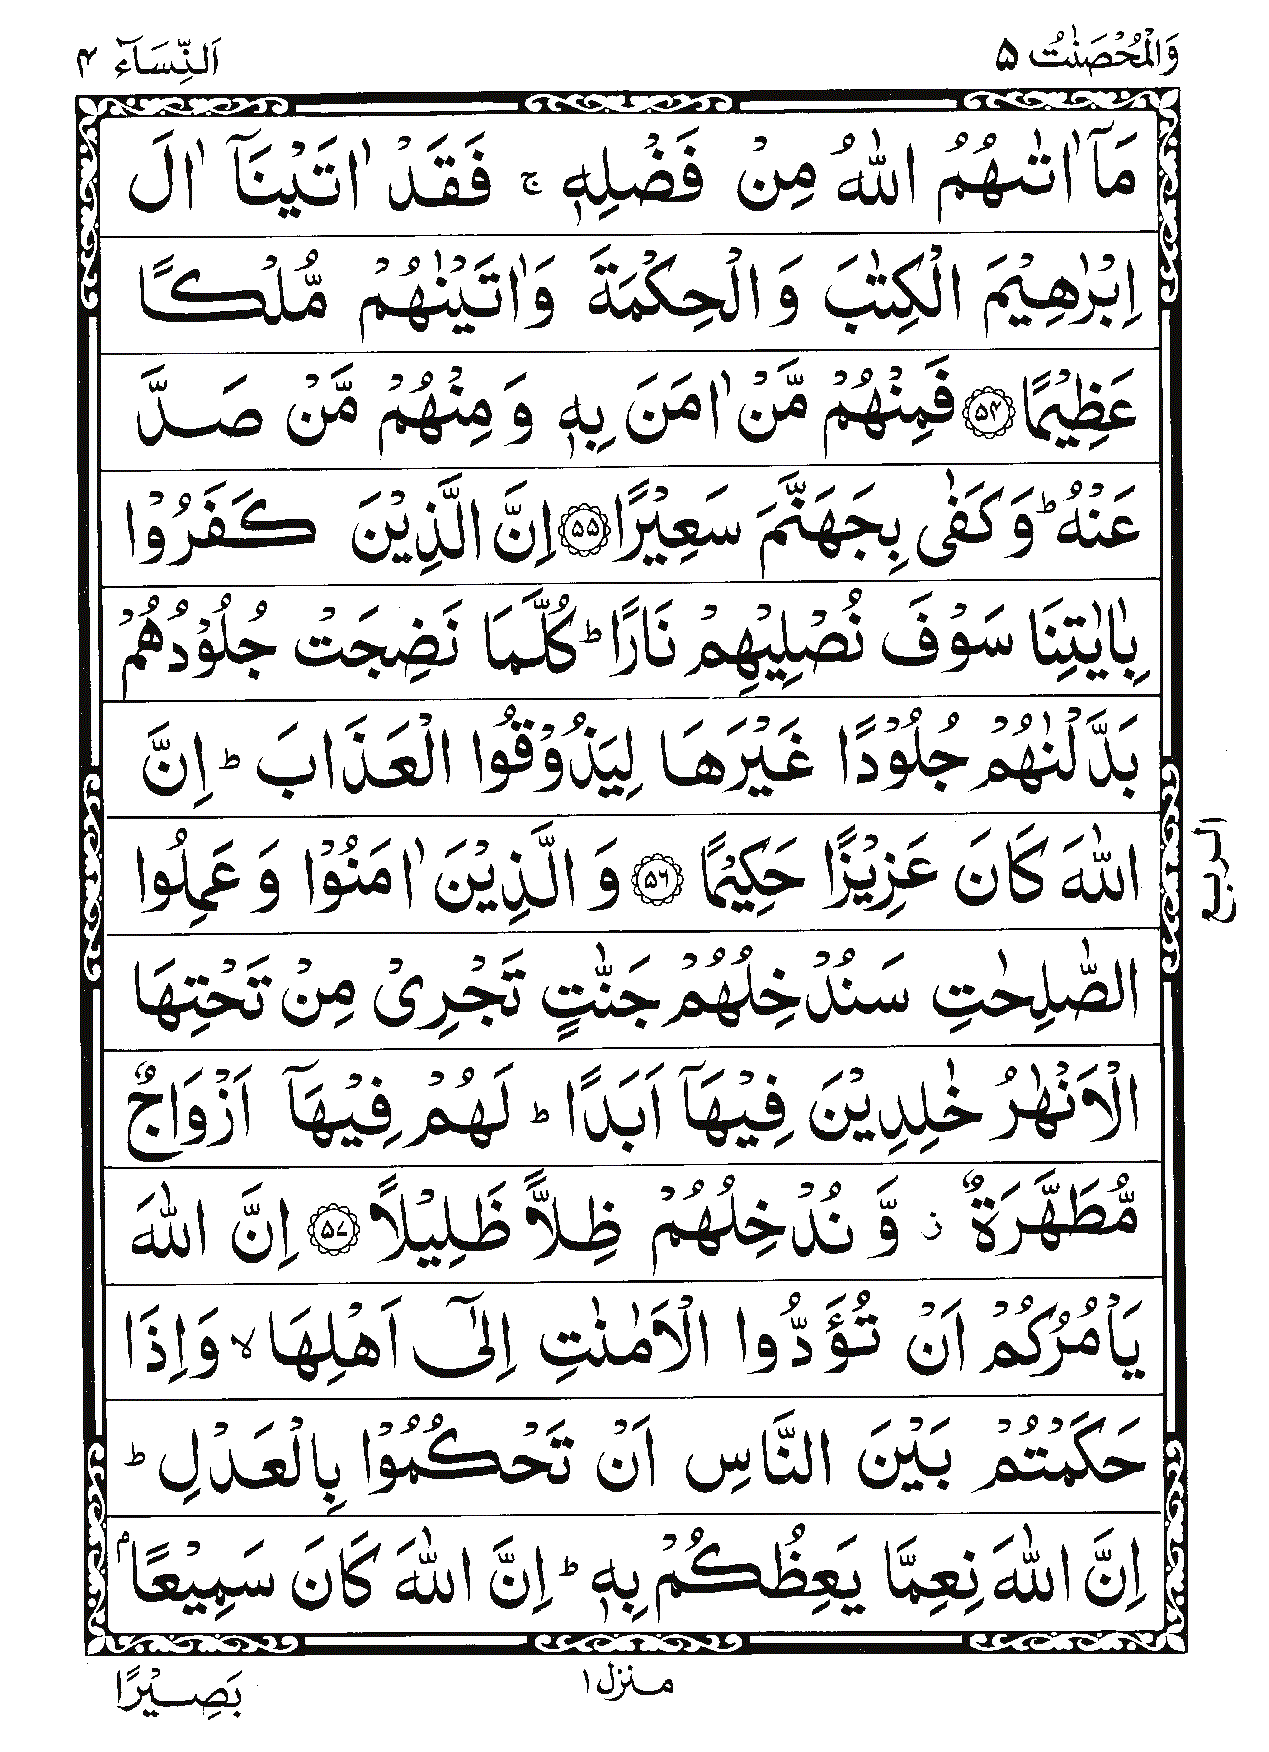 وَالْمُحْصَنٰتُ ٥
اَلنِّسَآءِ ٤
مَآ اٰتٰىهُمُ اللّٰهُ مِنْ فَضْلِهٖ ۚ فَقَدْ اٰتَيْنَآ اٰلَ
اِبْرٰهِيْمَ الْكِتٰبَ وَ الْحِكْمَةَ وَاٰتَيْنٰهُمْ مُّلْكًا
عَظِيْمًا ۝٥٤ فَمِنْهُمْ مَّنْ اٰمَنَ بِهٖ وَ مِنْهُمْ مَّنْ صَدَّ
عَنْهُ ؕ وَكَفٰى بِجَهَنَّمَ سَعِيْرًا ۝٥٥ اِنَّ الَّذِيْنَ كَفَرُوْا
بِاٰيٰتِنَا سَوْفَ نُصْلِيْهِمْ نَارًا ؕ كُلَّمَا نَضِجَتْ جُلُوْدُهُمْ
بَدَّلْنٰهُمْ جُلُوْدًا غَيْرَهَا لِيَذُوْقُوا الْعَذَابَ ؕ اِنَّ
اللّٰهَ كَانَ عَزِيْزًا حَكِيْمًا ۝٥٦ وَ الَّذِيْنَ اٰمَنُوْا وَ عَمِلُوا
الصّٰلِحٰتِ سَنُدْخِلُهُمْ جَنّٰتٍ تَجْرِيْ مِنْ تَحْتِهَا
الْاَنْهٰرُ خٰلِدِيْنَ فِيْهَآ اَبَدًا ؕ لَهُمْ فِيْهَآ اَزْوَاجٌ
مُّطَهَّرَةٌ ز وَّ نُدْخِلُهُمْ ظِلًّا ظَلِيْلًا ۝٥٧ اِنَّ اللّٰهَ
يَاْمُرُكُمْ اَنْ تُؤَدُّوا الْاَمٰنٰتِ اِلٰٓى اَهْلِهَا ۙ وَاِذَا
حَكَمْتُمْ بَيْنَ النَّاسِ اَنْ تَحْكُمُوْا بِالْعَدْلِ ؕ
اِنَّ اللّٰهَ نِعِمَّا يَعِظُكُمْ بِهٖ ؕ اِنَّ اللّٰهَ كَانَ سَمِيْعًۢا
الربع
منزل ١
بَصِيْرًا